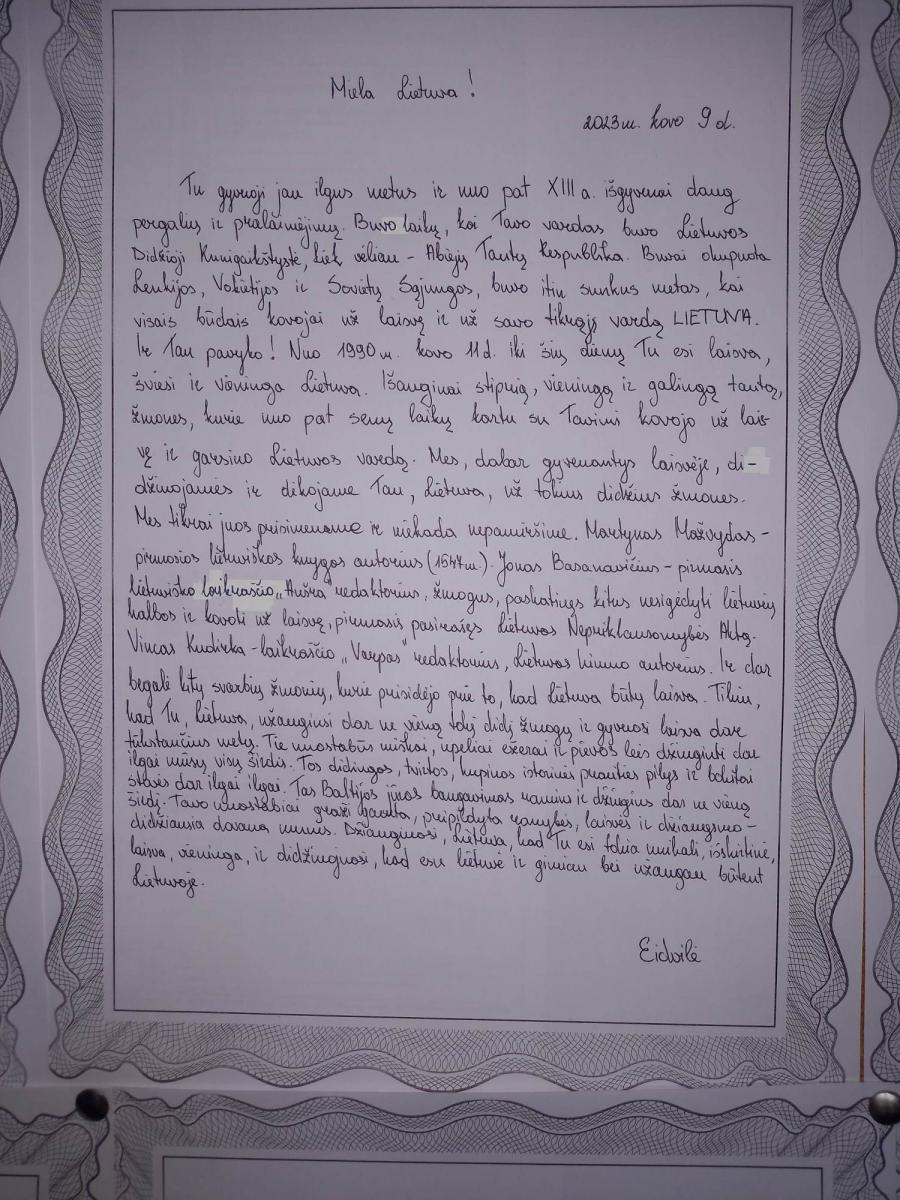 Miela Lietuva!
2023 m. kovo 9 d.
Tu gyvuoji jau ilgus metus ir nuo pat XIII a. išgyvenai daug
pergalių ir pralaimėjimų. Buvo laikų, kai Tavo vardas buvo Lietuvos
Didžioji Kunigaikštystė, kiek vėliau - Abiejų Tautų Respublika. Buvai okupuota
Lenkijos, Vokietijos ir Sovietų Sąjungos, buvo itin sunkus metas, kai
visais būdais kovojai už laisvę ir už savo tikrąjį vardą LIETUVA.
Ir Tau pavyko! Nuo 1990 m. kovo 11 d. iki šių dienų Tu esi laisva,
šviesi ir vieninga Lietuva. Išauginai stiprią, vieningą ir galingą tautą,
žmones, kurie nuo pat senų laikų kartu su Tavimi kovojo už lais-
vę ir garsino Lietuvos vardą. Mes, dabar gyvenantys laisvėje, di-
džiuojamės ir dėkojame Tau, Lietuva, už tokius didžius žmones.
Mes tikrai juos prisimename ir niekada nepamiršime. Martynas Mažvydas -
pirmosios lietuviškos knygos autorius (1547 m.). Jonas Basanavičius - pirmasis
lietuviško laikraščio „Aušra" redaktorius, žmogus, paskatinęs kitus nesigėdyti lietuvių
kalbos ir kovoti už laisvę, pirmasis pasirašęs Lietuvos Nepriklausomybės Aktą.
Vincas Kudirka - laikraščio „Varpas" redaktorius, Lietuvos himno autorius. Ir dar
begalė kitų svarbių žmonių, kurie prisidėjo prie to, kad Lietuva būtų laisva. Tikiu,
kad Tu, Lietuva, užauginsi dar ne vieną tokį didį žmogų ir gyvuosi laisva dar
tūkstančius metų. Tie nuostabūs miškai, upeliai ežerai ir pievos leis džiuginti dar
ilgai mūsų visų širdis. Tos didingos, tvirtos, kupinos istorinės praeities pilys ir bokštai
stovės dar ilgai ilgai. Tas Baltijos jūros bangavimas ramins ir džiugins dar ne vieną
širdį. Tavo nuostabiai graži gamta, pripildyta ramybės, laisvės ir džiaugsmo -
didžiausia dovana mums. Džiaugiuosi, Lietuva, kad Tu esi tokia unikali, išskirtinė,
laisva, vieninga, ir didžiuojuosi, kad esu lietuvė ir gimiau bei užaugau būtent
Lietuvoje.
Eidvilė